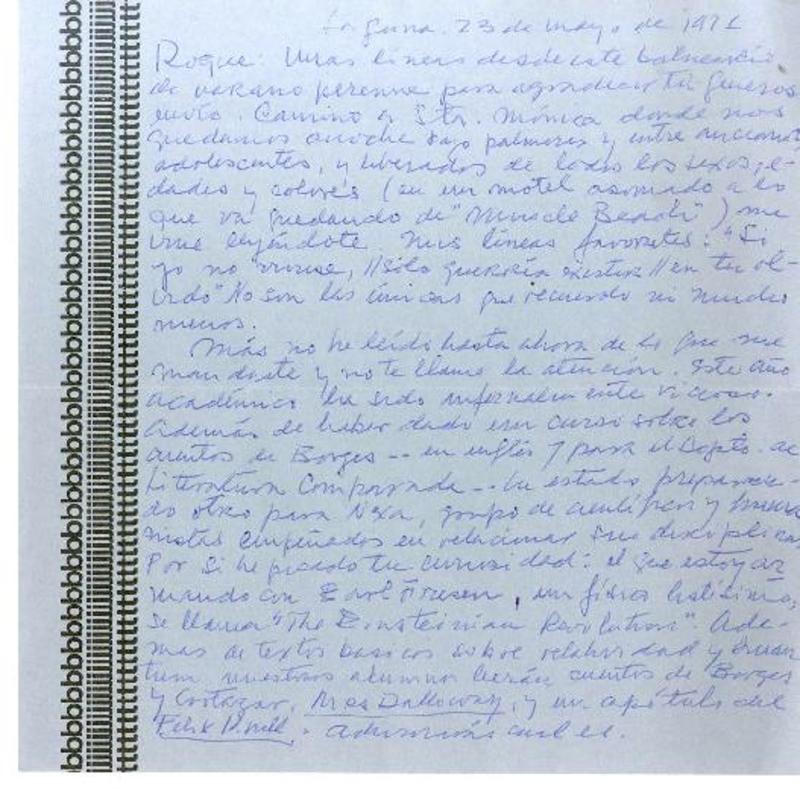 Laguna. 23 de mayo de 1971
Roque: Unas líneas desde este balneario
de verano perenne para agradecer tu generoso
envío. Camino a Sta. Mónica donde nos
quedamos anoche bajo palmeras y entre ancianos
adolescentes, y liberados de todos los sexos, e-
dades y colores (en un motel asomado a lo
que va quedando de "Muscle Beach") me
vine leyéndote. Mis líneas favoritas: "Si
yo no viviese, // sólo querría existir // en tu ol-
vido" No son las únicas que recuerdo ni mucho
menos.
Más no he leído hasta ahora de lo que me
mandaste y no te llame la atención. Este año
académico ha sido infernalmente
Además de haber dado un curso sobre los
cuentos de Borges -- en inglés y para el Depto. de
Literatura Comparada -- he estado preparan-
do otro para Nexa, grupo de científicos y huma
nistas empeñados en relacionar sus disciplinas
Por si he picado tu curiosidad: el que estoy ar
mando con, un físico listísimo,
se llama "The Einsteinian Revolution". Ade-
mas de textos basicos sobre relatividad y cuan
tum, nuestros alumnos leerán cuentos de Borges
y Cortazar, Mrs Dalloway, y un capítulo del
Felix Krull. Adivina cual es.